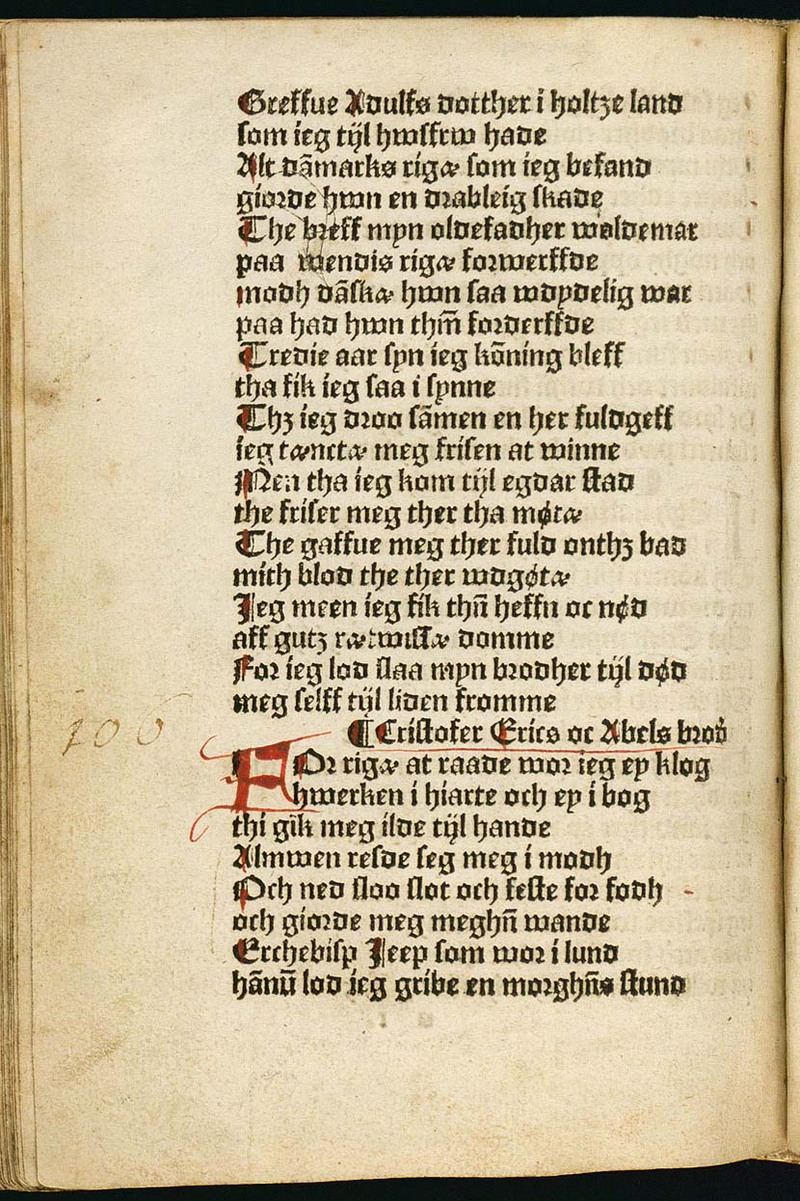 Greffue Adulfs dotther i holtze land
som ieg tijl hwsfrw hade
Alt dãmarks rigæ som ieg befand
giorde hwn en drableig skade
The breff myn oldefadher woldemar
paa wendis rigæ forwerffde
modh dãskæ hwn saa wdydelig war
paa had hwn thm̃ forderffde
Tredie aar syn ieg kõning bleff
tha fik ieg saa i synne
Thꝫ ieg droo sãmen en her fuldgeff
ieg tæncte meg frisen at winne
Men tha ieg kom tijl egdar stad
the friser meg ther tha møtæ
The gaffue meg ther fuld onthꝫ bad
mith blod the ther wdgøtæ
Jeg meen ieg fik thñ heffn oc nød
aff gutz rætwisæ domme
For ieg lod slaa myn brodher tijl død
meg selff tijl liden fromme
106
¶ Cristofer Erics oc Abels brod̉
FOr rigæ at raade wor ieg ey klog
hwerken i hiarte och ey i bog
thi gik meg ilde tijl hande
Almwen resde seg meg i modh
Och ned sloo slot och feste for fodh
och giorde meg meghñ wande
Erchebisp Jeep som wor i lund
hãnũ lod ieg gribe en morghñs stund